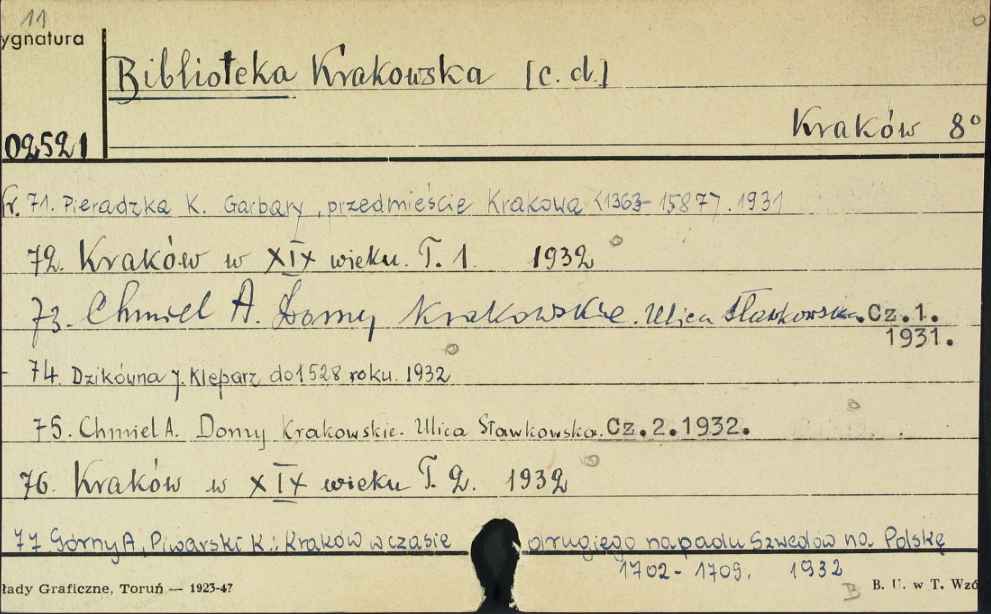 11
ygnatura
Biblioteka Krakowska [c.d.]
Kraków 8°
02521
Nr. 71. Pieradzka K. Garbary, przedmieście Krakowa <1363-1587>. 1931
72. Kraków w XIX wieku. T. 1. 1932
73. Chmiel A. Domy Krakowskie. Ulica Sławkowska. Cz.1.
1931.
74. Dzikówna J. Kleparz do 1528 roku. 1932
75. Chmiel A. Domy Krakowskie. Ulica Sławkowska. Cz.2.1932.
76. Kraków w XIX wieku T. 2. 1932
77 Górny A, Piwarski K.: Kraków w czasie drugiego napadu Szwedów na Polskę
1702-1709. 1932
łady Graficzne, Toruń — 1923-47
B
B. U. w T. Wzó